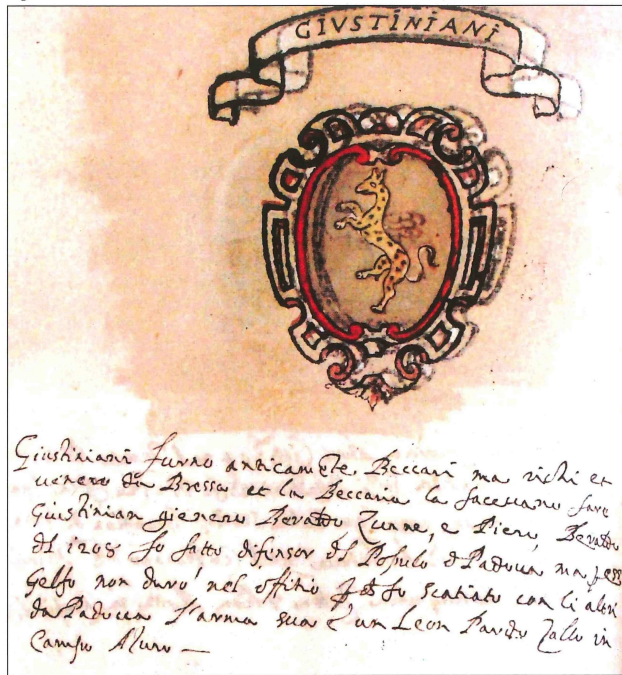 GIVSTINIANI
Giustiniani furno anticamẽte Beccari ma richi et
uenero da Bressa et la Beccaria la faceuano fare
Giustinian Zunne, e Piero,
del 1208 fo fatto difensor del Populo d Padoua ma
Gelfo non durò nel offitio fo scatiato con li altri
da Padoua l'arma sua è un Leon Pardo Zallo in
Campo